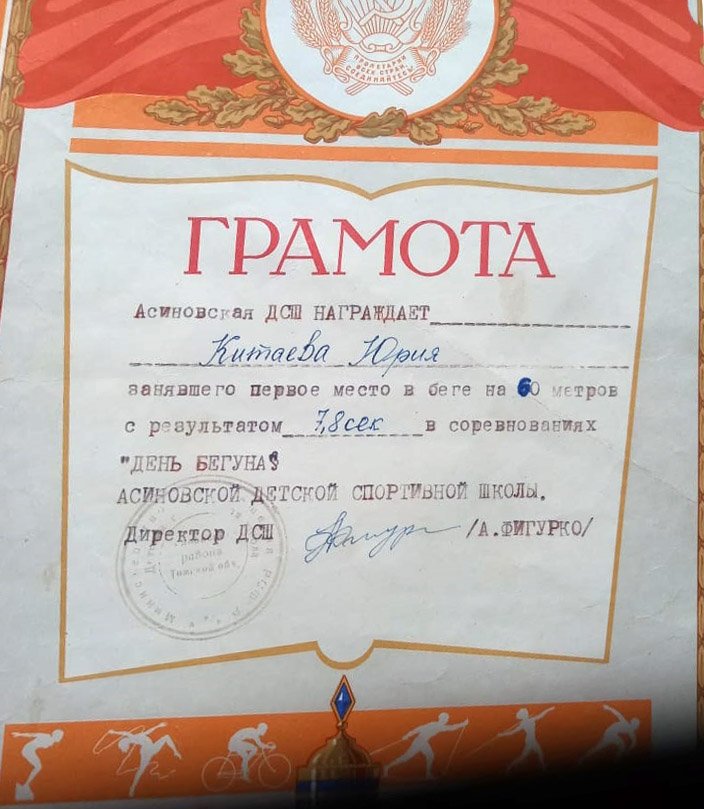 ПРОЛЕТАРИИ
ВСЕХ СТРАН,
СОЕДИНЯЙТЕСЬ!
ГРАМОТА
Асиновская ДСШ НАГРАЖДАЕТ
Китаева Юрия
занявшего первое место в беге на 60 метров
с результатом 7,8 сек в соревнованиях
"ДЕНЬ БЕГУНА"
АСИНОВСКОЙ ДЕТСКОЙ СПОРТИВНОЙ ШКОЛЫ.
Директор ДСШ /А.ФИГУРКО/
района
Томской обл.